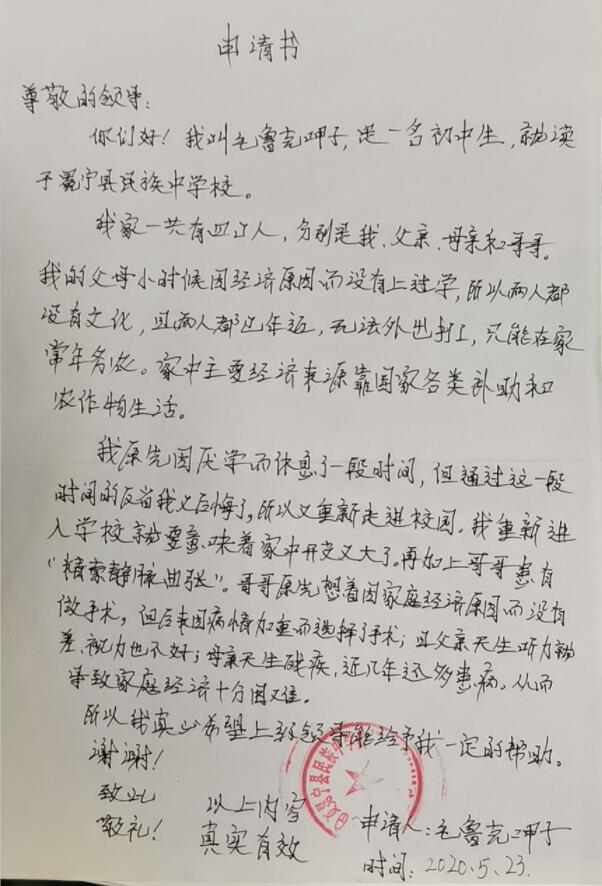 申请书
尊敬的领导：
你们好！我叫毛鲁克呷子，是一名初中生，就读
于冕宁县民族中学校。
我家一共有四口人，分别是我、父亲、母亲和哥哥。
我的父母小时候因经济原因而没有上过学，所以两人都
没有文化，且两人都已年近，无法外出打工，只能在家
常年务农。家中主要经济来源靠国家各类补助和
农作物生活。
我原先因厌学而休息了一段时间，但通过这一段
时间的反省我又后悔了，所以又重新走进校园。我重新进
入学校就要意味着家中开支又大了。再加上哥哥患有
“精索静脉曲张”。哥哥原先想着因家庭经济原因而没有
做手术，但后来因病情加重而选择了手术；且父亲天生听力就
差、视力也不好；母亲天生残疾，近几年还多患病。从而
导致家庭经济十分困难。
所以我真心希望上级领导能给予我一定的帮助。
谢谢！
致此
敬礼！
以上内容
真实有效
冕宁县民族中学校
申请人：毛鲁克呷子
时间：2020.5.23.